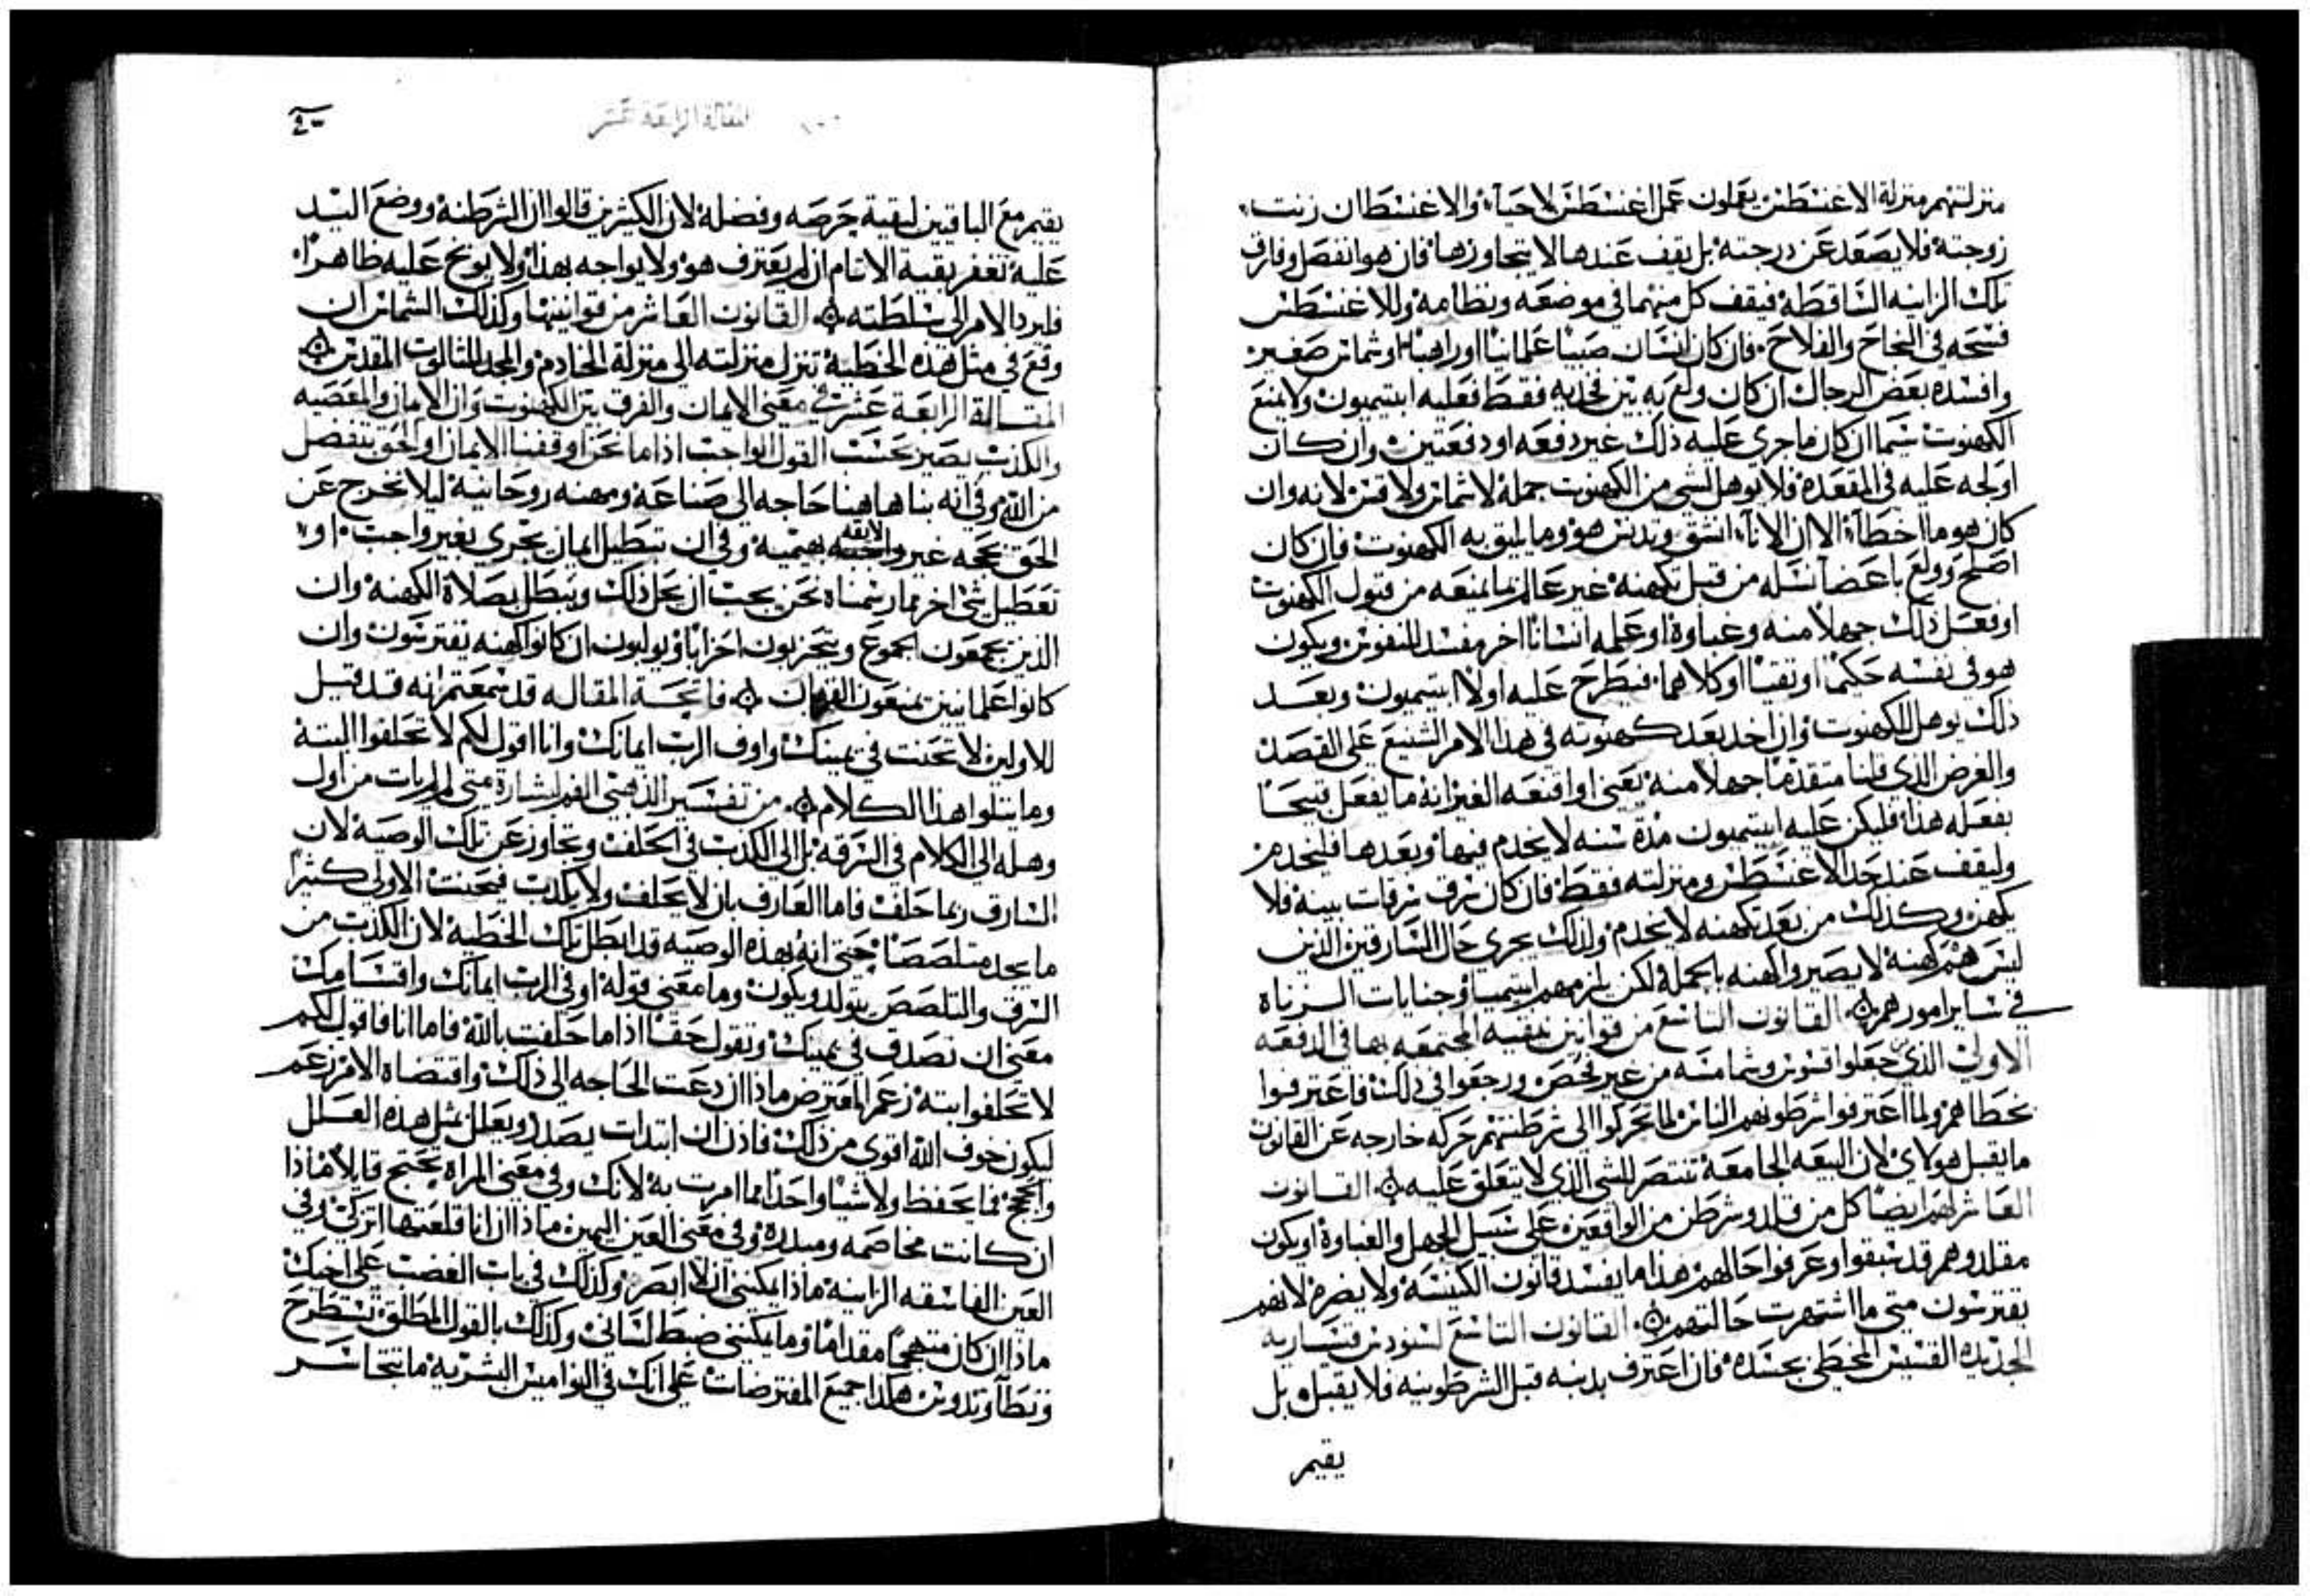 منزلتهم منزلة الاغنسطس يعملون عمل اغنسطس لاحياء والاغنسطان زنت
زوجته فلا يصعد عن درجته بل يقف عندها لا يتجاوزها فان هو انفصل وفارق
تلك الزانيه الساقطة فيقف كل منهما في موضعه ونظامه وللاغنسطس
فسحه في النجاح والفلاح فان كان انسان صبيا علمانيا او راهبا او شماس صغير
وافسده بعض الرجال ان كان ولع به بين فخديه فقط فعليه ابتيميون ولا يمنع
الكهنوت سيما ان كان ماجرى عليه ذلك غير دفعه او دفعتين وان كان
اولجه عليه في المقعدة فلا يوهل لشي من الكهنوت جملة لا شماس ولا قس لانه وان
كان هو ما اخطاء الا ان الاناء انشق وتدنس هو وما يليق به الكهنوت فان كان
اصلح وولع باعضا نسله من قبل تكهنه غير عالم بما يمنعه من قبول الكهنوت
او فعل ذلك جهلا منه وغباوة او علمه انسانا اخر مفسد للنفوس ويكون
هو في نفسه حكيما او نقيا او كلاهما فيطرح عليه اولا ابتيميون وبعد
ذلك يوهل للكهنوت وان احد بعد كهنوته في هذا الامر الشنيع على القصد
والغرض الذي قلنا متقدما جهلا منه يعني او اقنعه الغير انه ما يفعل قبيحا
بفعله هذا فليكن عليه ابيتيميون مدة سنه لا يخدم فيها وبعدها فليخدم
وليقف عند حد الاغنسطس ومنزلته فقط فان كان سرق سرقات بينه فلا
يكهن وكذلك من بعد تكهنه لا يخدم ولذلك يجري حال السارقين الذين
ليس هم كهنه لا يصيروا كهنه بالجملة لكن يلزمهم ابتيميا وجنايات الزناه
في ساير امورهم القانون التاسع من قوانين نيقيه المجتمعه بها في الدفعه
الاولى الذي جعلوا قسوس وشمامسه من غير فحص ورجعوا في ذلك فاعترفوا
بخطاهم ولما اعترفوا شرطونهم الناس لما تحركوا الى شرطنتهم حركه خارجه عن القانون
ما يقبل هولاي لان البيعه الجامعة تنتصر للشي الذي لا يتعلق عليه القانون
العاشر لهم ايضا كل من قلد وشرطن من الواقعين على سبيل الجهل والغباوة او يكون
مقلدوهم قد سبقوا وعرفوا حالهم هذا ما يفسد قانون الكنيسة ولا يضره لانهم
يفترسون متى ما اشتهرت حالتهم القانون التاسع لسنودس قيساريه
الجديده القسيس المخطي بجسده فان اعترف بدنبه قبل الشرطونيه فلا يقبل بل
يقيم
المقالة الرابعة عشر
يقيم مع الباقين لبقية حرصه وفضله لان الكثيرين قالوا ان الشرطنة ووضع اليد
عليه تغفر بقية الاثام ان لم يعترف هو ولا يواجه بهذا ولا يوبخ عليه ظاهرا
فليرد الامر الى سلطته القانون العاشر من قوانينها وكذلك الشماس ان
وقع في مثل هذه الخطية تنزل منزلته الى منزلة الخادم والمجد للثالوت المقدس
المقالة الرابعة عشرة في معنى الايمان والفرق بين الكهنوت وان الايمان والمعصيه
والكذب يصير بحسب القول الواجب اذا ما نحن اوقفنا الايمان او الحق ينفصل
من الله وفي انه بنا هاهنا حاجه الى صناعة ومهنه روحانية ليلا نخرج عن
الحق بحجه غير لايقه بهيمية وفي ان تبطيل ايمان يجرى بغير واجب او
تعطيل شي اخر مما رسمناه نحن يجب ان يحل ذلك ويبطل بصلاة الكهنة وان
الذين يجمعون الجموع ويتحزبون احزابا ويولبون ان كانوا كهنه يفترسون وان
كانوا علمانيين يمنعون القربان فاتحة المقاله قد سمعتم انه قد قيل
للاولين لا تحنت في يمينك واوف الرب ايمانك وانا اقول لكم لا تحلفوا البتة
وما يتلوا هذا الكلام من تفسير الذهبي الفم لبشارة متى لم يات من اول
وهله الى الكلام في السرقه بل الى الكدب في الحلف وتجاوز عن تلك الوصية لان
السارق ربما حلف فاما العارف بان لا يحلف ولا يكدب فيجنب الاولى كثيرا
ما يجد متلصصا حتى انه بهذه الوصيه قد ابطل تلك الخطية لان الكذب من
السرق والتلصص يتولد ويكون وما معنى قوله اوفي الرب ايمانك واقسامك
معنى ان تصدق في يمينك وتقول حقا اذا ما حلفت بالله فاما انا فاقول لكم
لا تحلفوا بتة زعم المعترض ماذا ان دعت الحاجه الى ذلك واقتضاه الامر زعم
ليكون خوف الله اقوى من ذلك فاذن ان ابتدات بصدد وبعلل بمثل هذه العلل
والحجج فما يحفظ ولا شيا واحدا مما امرت به لانك وفي معنى المراة تحتج قايلا ماذا
ان كانت مخاصمه ومبدره وفي معنى العين اليمين ماذا ان انا قلعتها اترى وفي
العين الفاسقه الزانيه ماذا يمكنني ان لا ابصر وكذلك في باب الغضب على اخيك
ماذا ان كان متهجما مقداما وما يمكنني ضبط لساني وكذلك بالقول المطلق تستطرح
وتطا وتدوس هكذا جميع المفترضات على انك في النواميس البشرية ما تتجاسر